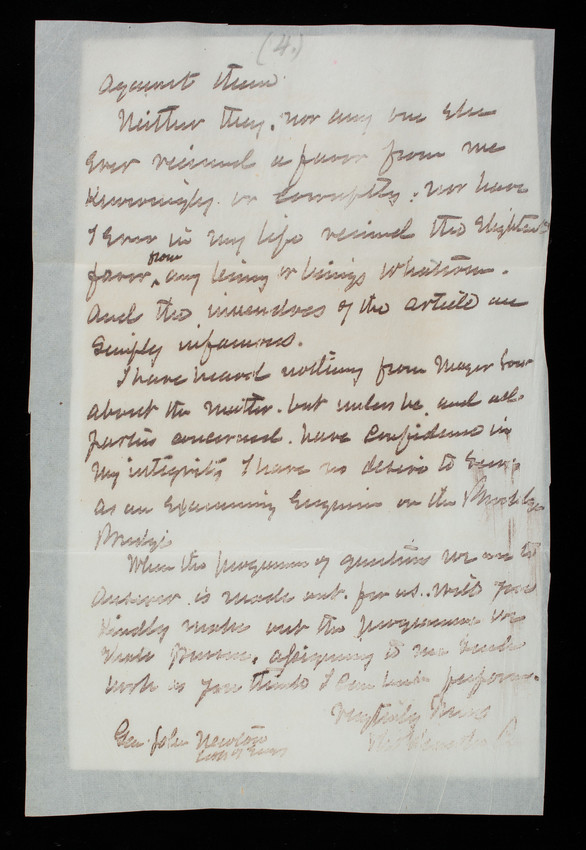 (4.)
against them.
Neither they, nor any one else
ever received a favor from me
knowingly or corruptly; nor have
I ever in my life received the slightest
from
favor any being or beings whatsoever.
And the innuendoes of the article are
simply infamous.
I have heard nothing from Mayor Low
about the matter. but unless he, and all
parties concerned. have confidence in
my integrity I have no desire to serve
as an Examining Engineer on the Brooklyn
Bridge
When the programme of questions we are to
answer is made out. for us. will you
kindly make out the programme we
shall pursue, assigning to me such
work as you think I can best perform.
Very truly Yours
Gen. John Newton